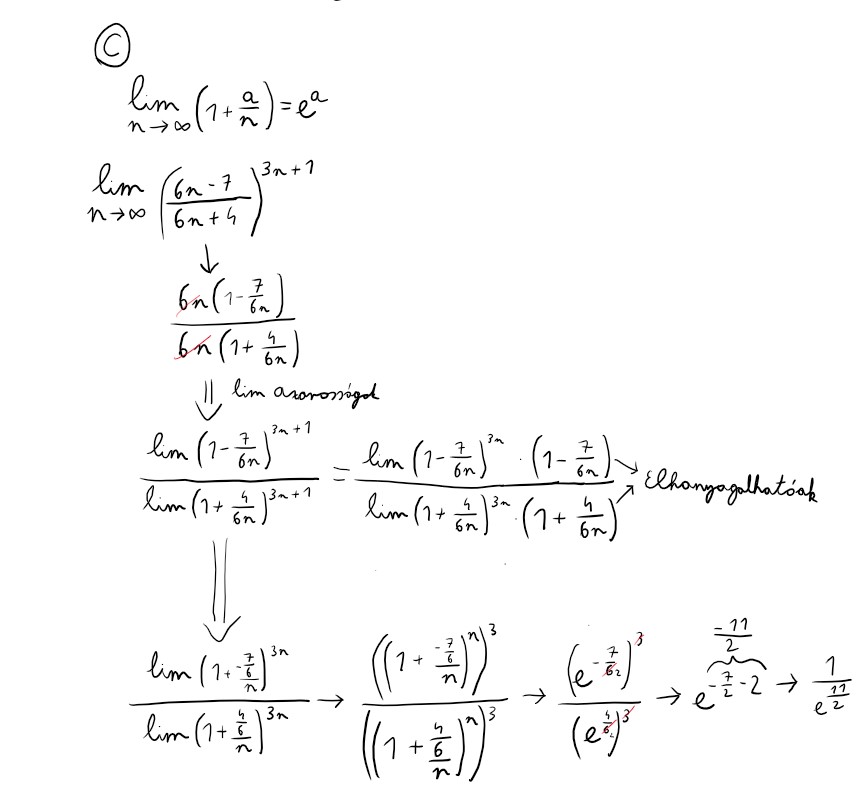 C
lim n→∞ (1 + a/n) = e^a
lim n→∞ ((6n - 7)/(6n + 4))^(3n + 1)
↓
6n(1 - 7/6n) / 6n(1 + 4/6n)
⇓ lim azorosságok
lim (1 - 7/6n)^(3n + 1) / lim (1 + 4/6n)^(3n + 1) = lim (1 - 7/6n)^(3n) · (1 - 7/6n) / lim (1 + 4/6n)^(3n) · (1 + 4/6n) → Elhanyagolhatóak
⇓
lim (1 + (-7/6)/n)^(3n) / lim (1 + (4/6)/n)^(3n) → ((1 + (-7/6)/n)^n)^3 / ((1 + (4/6)/n)^n)^3 → (e^(-7/6 2))^3 / (e^(4/6 2))^3 → e^(-7/2 - 2) -11/2 → 1/e^(11/2)